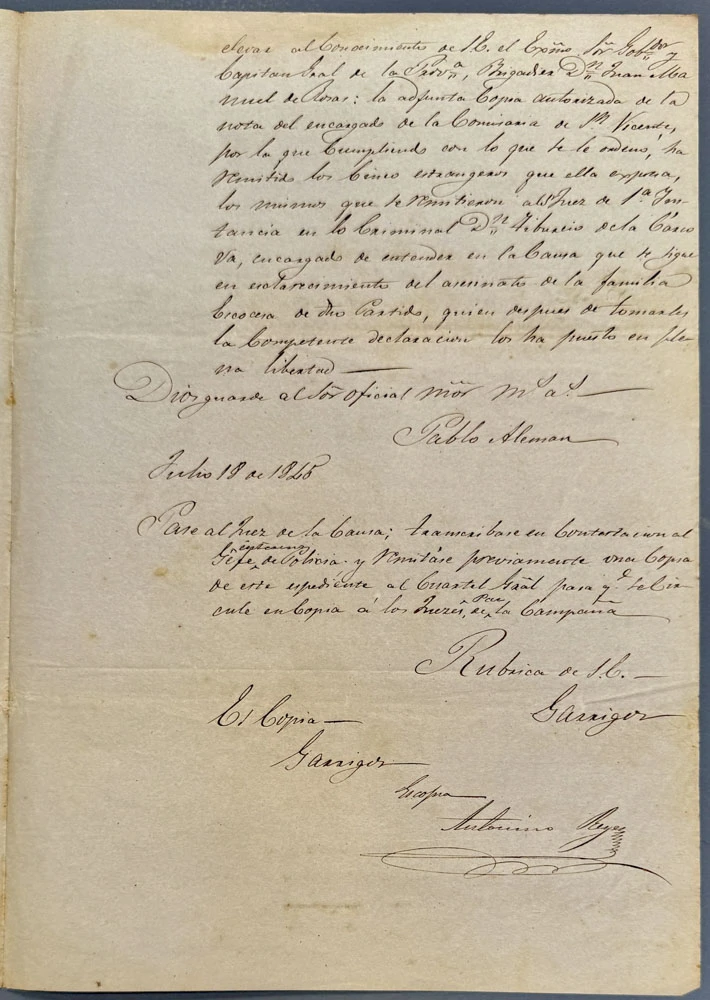 elevar al Conocimiento de S.E. el Exmo. Sõr Gobdor y
Capitan Gral de la Prova, Brigadier Dn Juan Ma
nuel de Rosas: la adjunta Copia autorizada de la
nota del encargado de la Comisaria de Sn Vicente,
por la que Cumpliendo con lo que se le ordenó, ha
remitido los Cinco estrangeros que ella expresa,
los mismos que se remitieron al Juez de 1.a Ins-
tancia en lo Criminal Dn Tiburcio de la Cárco
va, encargado de entender en la Causa que se sigue
en esclarecimiento del asesinato de la familia
Escocesa de dho Partido, quien despues de tomarles
la Competente declaracion los ha puesto en ple-
na libertad —
Dios guarde al Sõr Oficial Mõr M.s a.s —
Pablo Aleman
Julio 18 de 1845
Pase al Juez de la Causa; transcribase en Contestacion al
Gefe interino de Policia y remitáse previamente una Copia
de este espediente al Cuartel Gãal para q.e se Cir-
cule en Copia á los Juezes de Paz de la Campaña
Rubrica de S.E. —
Garrigos
Es Copia —
Garrigos
Es copia
Antonino Reyes